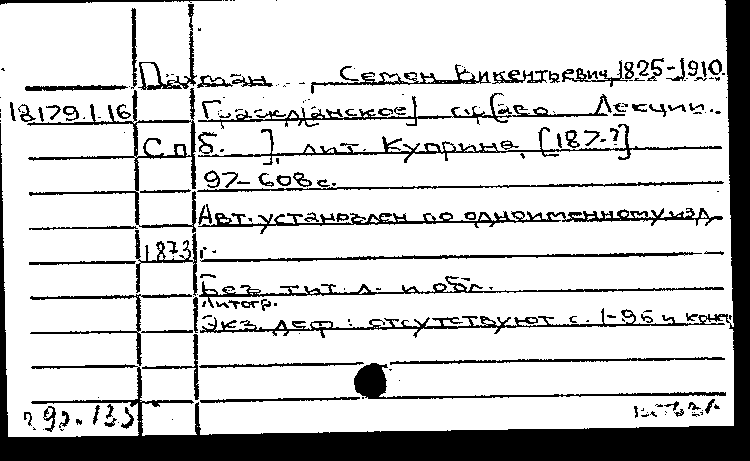 Пахман, Семен Викентьевич, 1825-1910.
18179.1.16 Гражд[анское] пр[аво. Лекции..
Спб. ], лит. Куприна, [187-?].
97-608 с.
Авт. установлен по одноименному изд.
1873 г.
Без тит. л. и обл.
Литогр.
Экз. деф.: отсутствуют с. 1-96 и конец